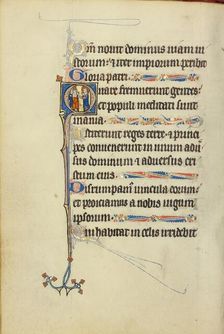 Qm̄ nouit dominus uiam iu
storum: et iter impiorum peribit
Gloria patri.
Quare fremuerunt gentes:
et populi meditati sunt
inania.
Astiterunt reges terre et princi
pes conuenerunt in unum adu
sus dominum et aduersus cri
stum eius.
Disrumpam' uincula eorum:
et proiciamus a nobis iugum
ipsorum.
Qui habitat in celis irridebit